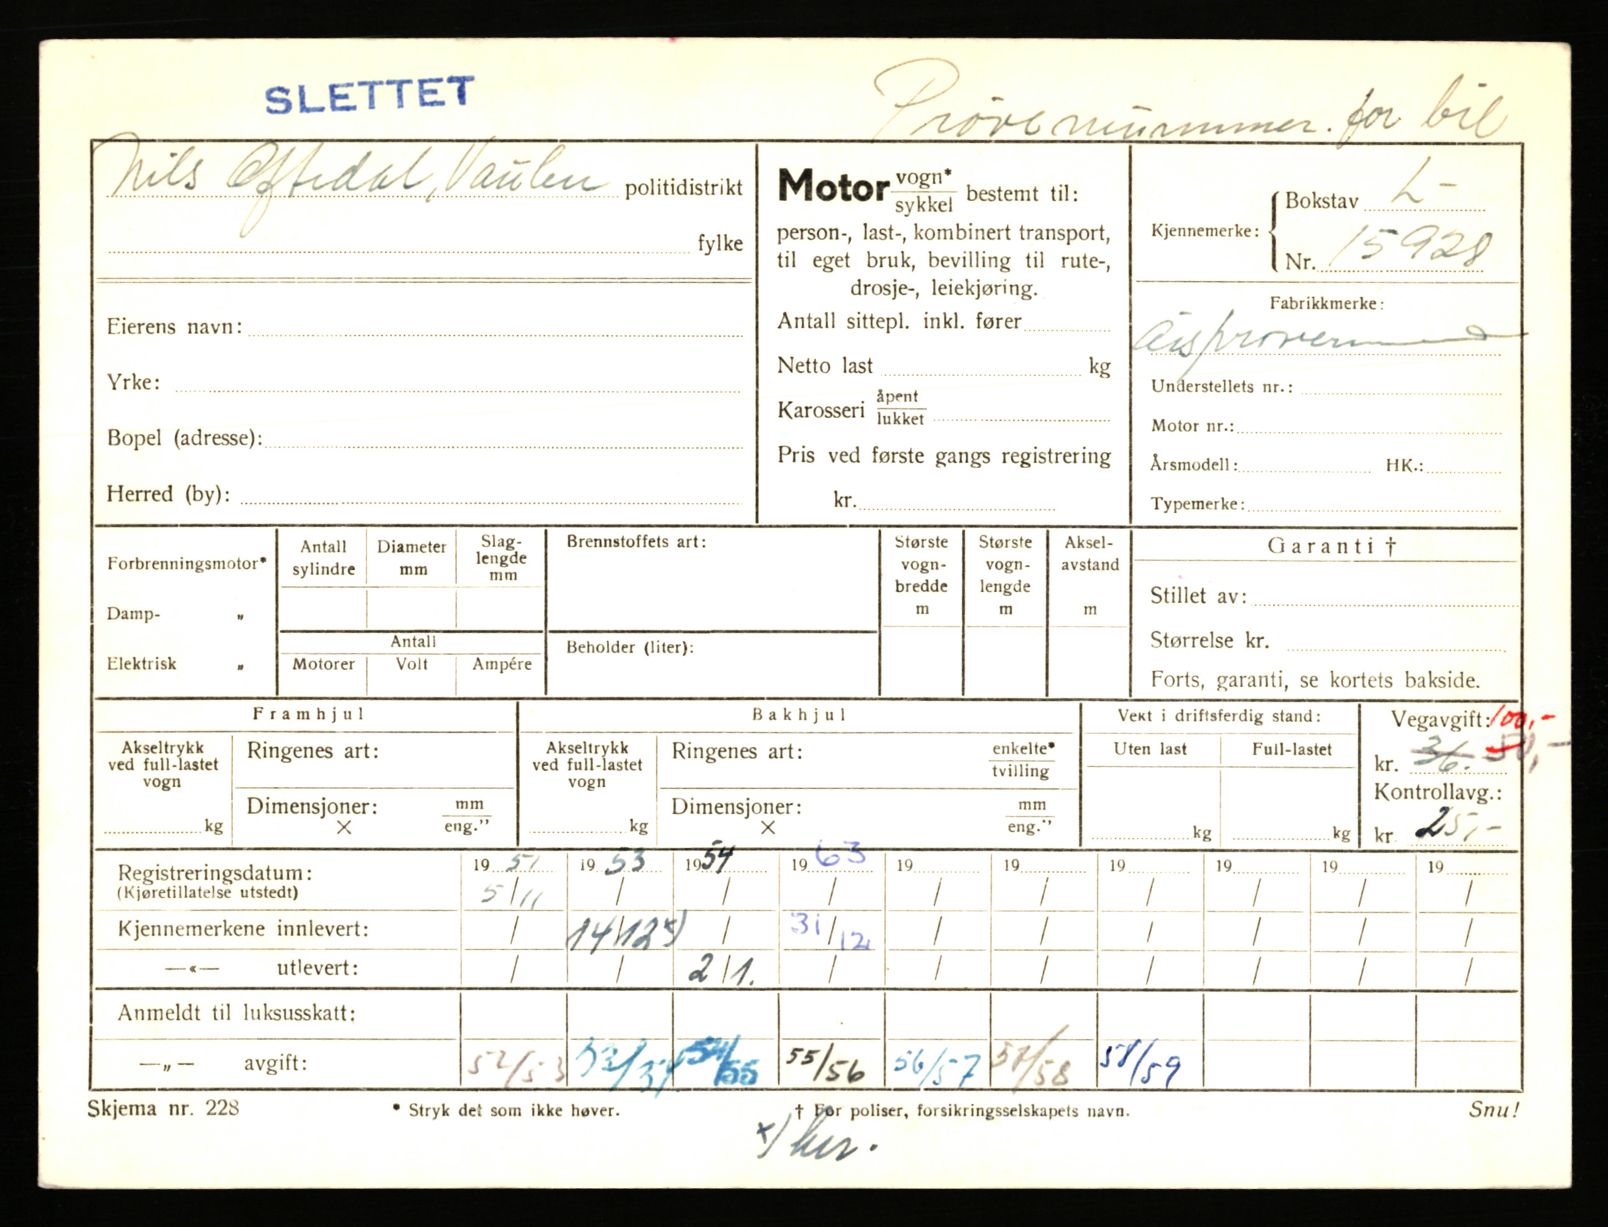 SLETTET
Prövenummer. for bil
Nils Oftedal, Vaulen politidistrikt
fylke
Eierens navn:
Yrke:
Bopel (adresse):
Herred (by):
Motor vogn* sykkel bestemt til:
person-, last-, kombinert transport,
til eget bruk, bevilling til rute-,
drosje-, leiekjøring.
Antall sittepl. inkl. fører
Netto last kg
Karosseri åpent lukket
Pris ved første gangs registrering
kr.
Kjennemerke: Bokstav L-
Nr. 15928
Fabrikkmerke:
Understellets nr.:
Motor nr.:
Årsmodell: HK.:
Typemerke:
Forbrenningsmotor*
Damp- „
Elektrisk „
Antall sylindre
Diameter mm
Slaglengde mm
Antall
Motorer Volt Ampére
Brennstoffets art:
Beholder (liter):
Største vogn-bredde m
Største vogn-lengde m
Aksel-avstand m
Garanti †
Stillet av:
Størrelse kr.
Forts, garanti, se kortets bakside.
Framhjul
Akseltrykk ved full-lastet vogn
kg
Ringenes art:
Dimensjoner: mm
× eng.”
Bakhjul
Akseltrykk ved full-lastet vogn
kg
Ringenes art: enkelte* tvilling
Dimensjoner: mm
× eng.”
Vekt i driftsferdig stand:
Uten last Full-lastet
kg kg
Vegavgift: 100,-
kr. 36. 50,-
Kontrollavg.:
kr 25,-
Registreringsdatum: 19 51 19 53 19 54 19 63 19 19 19 19 19 19
(Kjøretillatelse utstedt) 5/11 / / / / / / / / /
Kjennemerkene innlevert: / 14/12 x) / 31/12 / / / / / /
—«— utlevert: / / 2/1. / / / / / / /
Anmeldt til luksusskatt:
—„— avgift: 52/53 53/54 54/55 55/56 56/57 57/58 58/59
Skjema nr. 228
* Stryk det som ikke høver.
† For poliser, forsikringsselskapets navn.
Snu!
x) her.